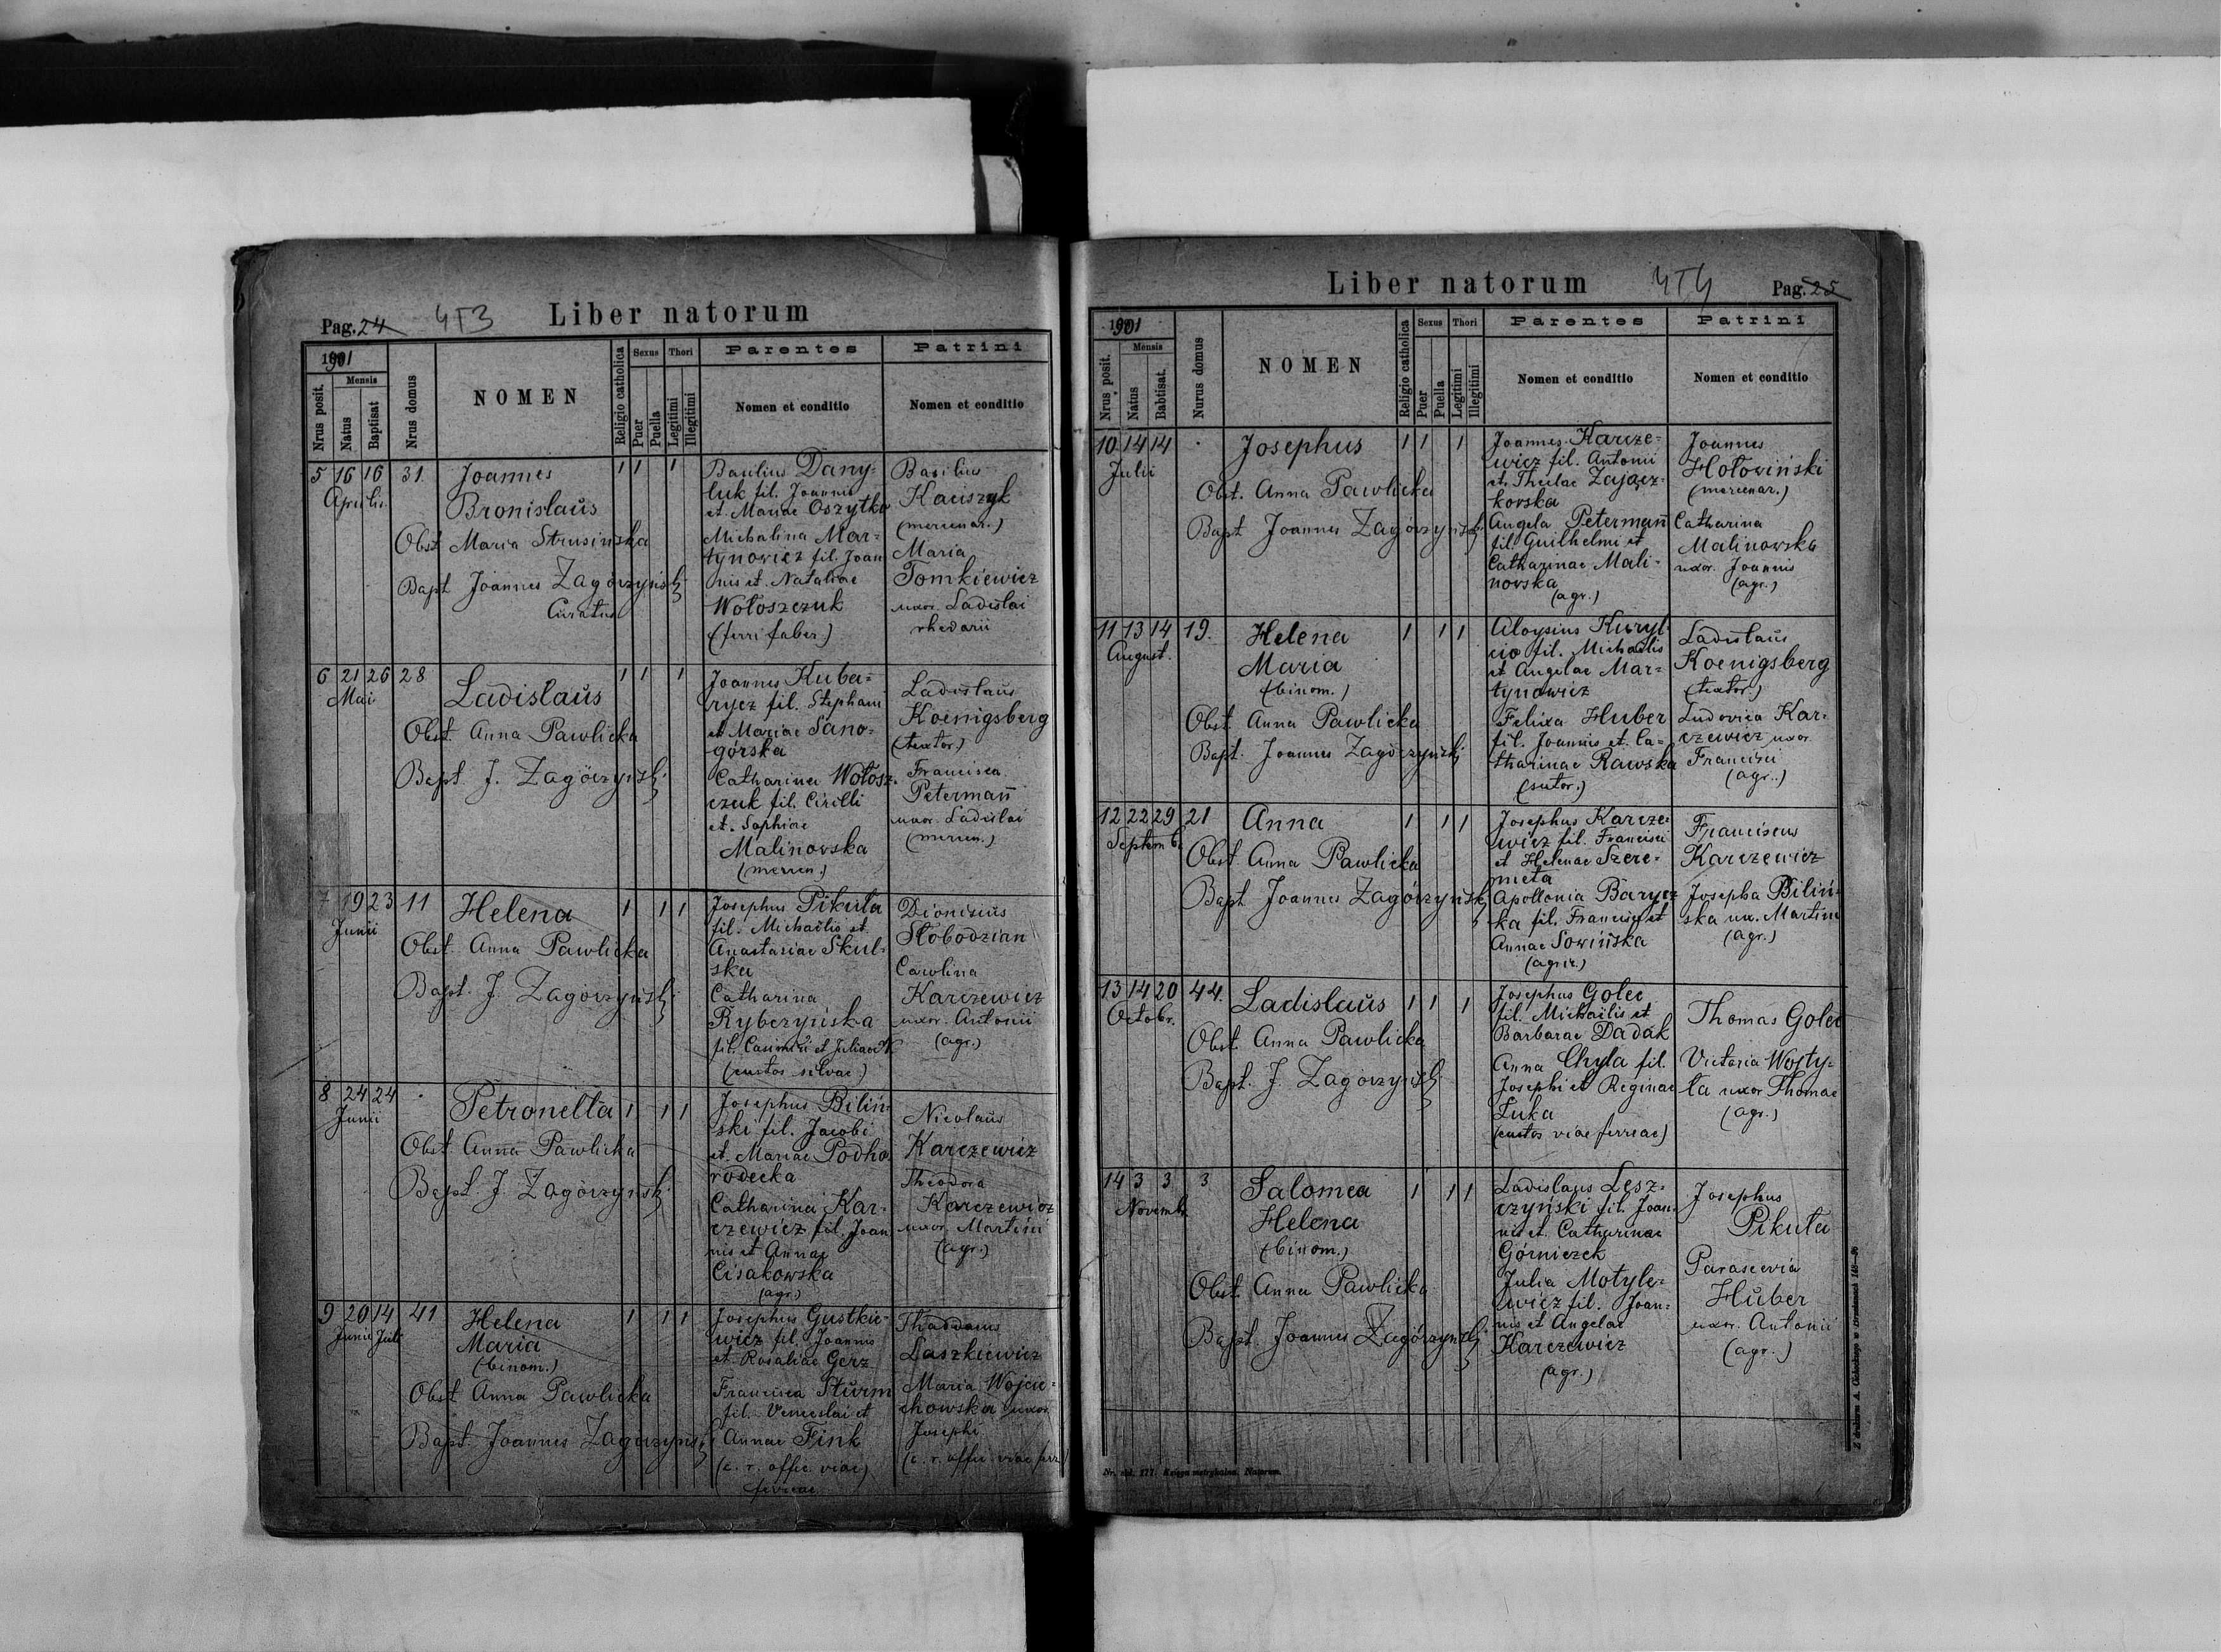 Liber natorum
Pag. 24
473
1901
Nrus posit.
Mensis
Natus
Baptisat
Nrus domus
NOMEN
Religio catholica
Sexus
Puer
Puella
Thori
Legitimi
Illegitimi
Parentes
Nomen et conditio
Patrini
Nomen et conditio
5 16 16 31.
Aprilis
Joannes
Bronislaŭs
Obst Maria Strusińska
Bapt Joannes Zagórzyński
Curatus
1 1 1
Basilius Dany-
luk fil. Joannis
et. Mariae Oszytko
Michalina Mar-
tynowicz fil. Joan
nis et. Nataliae
Wołoszczuk
(ferri faber)
Basilius
Kaciszyk
(mercenar.)
Maria
Tomkiewicz
uxor. Ladislai
rhedarii
6 21 26 28
Mai
Ladislaŭs
Obst. Anna Pawlicka
Bapt. J. Zagórzyński
1 1 1
Joannes Kuba-
rycz fil. Stephani
et Mariae Sano-
górska
Catharina Wołosz-
czuk fil. Cirilli
et. Sophiae
Malinovska
(mercen.)
Ladislaŭs
Koenigsberg
(textor.)
Francisca
Petermañ
uxor. Ladislai
(mercen.)
7 19 23 11
Junii
Helena
Obst. Anna Pawlicka
Bapt. J. Zagórzyński
1 1 1
Josephus Pikuła
fil. Michaëlis et.
Anastasiae Skul-
ska
Catharina
Rybczyńska
fil. Casimiri et Juliae N
(custos silvae)
Dionisiŭs
Słobodzian
Carolina
Karczewicz
uxor. Antonii
(agr.)
8 24 24 .
Junii
Petronella
Obst. Anna Pawlicka
Bapt. J. Zagórzyński
1 1 1
Josephus Biliń-
ski fil. Jacobi
et. Mariae Podho
rodecka
Catharina Kar-
czewicz fil. Joan
nis et Annae
Cisakowska
(agr.)
Nicolaŭs
Karczewicz
Theodora
Karczewicz
uxor. Martini
(agr.)
9 20 14 41
Junii Juli
Helena
Maria
(binom.)
Obst Anna Pawlicka
Bapt. Joannes Zagórzyński
1 1 1
Josephus Gustkie-
wicz fil. Joannis
et. Rosaliae Gerz
Francisca Stŭrm
fil. Venceslai et
Annae Fink
(c. r. offic. viae)
ferreae
Thaddaeus
Łaszkiewicz
Maria Wojcie-
chowska uxor
Josephi
(c. r. offic. viae ferr)
Liber natorum
474
Pag. 25
1901
Nrus posit.
Mensis
Natus
Babtisat.
Nurus domus
NOMEN
Religio catholica
Sexus
Puer
Puella
Thori
Legitimi
Illegitimi
Parentes
Nomen et conditio
Patrini
Nomen et conditio
10 14 14 .
Julii
Josephus
Obst. Anna Pawlicka
Bapt Joannes Zagórzyński
1 1 1
Joannes Karcze-
wicz fil. Antonii
et. Theclae Zającz-
kovska
Angela Petermañ
fil. Guilhelmi et
Catharinae Mali-
novska
(agr.)
Joannes
Hołowiński
(mercenar.)
Catharina
Malinowska
uxor. Joannis
(agr.)
11 13 14 19.
August.
Helena
Maria
(binom.)
Obst. Anna Pawlicka
Bapt. Joannes Zagórzyński
1 1 1
Aloysius Kuryl-
cio fil. Michaëlis
et Angelae Mar-
tynowicz
Felixa Huber
fil. Joannis et. Ca-
tharinae Rawska
(sutor.)
Ladislaŭs
Koenigsberg
(textor.)
Ludovica Kar-
czewicz uxor
Francisci
(agr..)
12 22 29 21
Septemb.
Anna
Obst. Anna Pawlicka
Bapt Joannes Zagórzyński
1 1 1
Josephus Karcze-
wicz fil. Francisci
et Helenae Szere-
meta
Apollonia Barycz
ka fil. Francisci et
Annae Sowińska
(agric.)
Franciscus
Karczewicz
Josepha Biliń-
ska ux. Martini
(agr.)
13 14 20 44.
Octobr.
Ladislaŭs
Obst. Anna Pawlicka
Bapt. J. Zagórzyński
1 1 1
Josephus Golec
fil. Michaëlis et
Barbarae Dadak
Anna Chyla fil.
Josephi et Reginae
Łuka
(custos viae ferreae)
Thomas Golec
Victoria Wojty-
ła uxor Thomae
(agr.)
14 3 3 3
Novemb.
Salomea
Helena
(binom.)
Obst. Anna Pawlicka
Bapt. Joannes Zagórzyński
1 1 1
Ladislaus Lesz-
czyński fil. Joan-
nis et. Catharinae
Górniczek
Julia Motyle-
wicz fil. Joan-
nis et Angelae
Karczewicz
(agr.)
Josephus
Pikuła
Parascevia
Hŭber
uxor. Antonii
(agr.)
Nr. skł. 277. Księga metrykalna. Natorum.